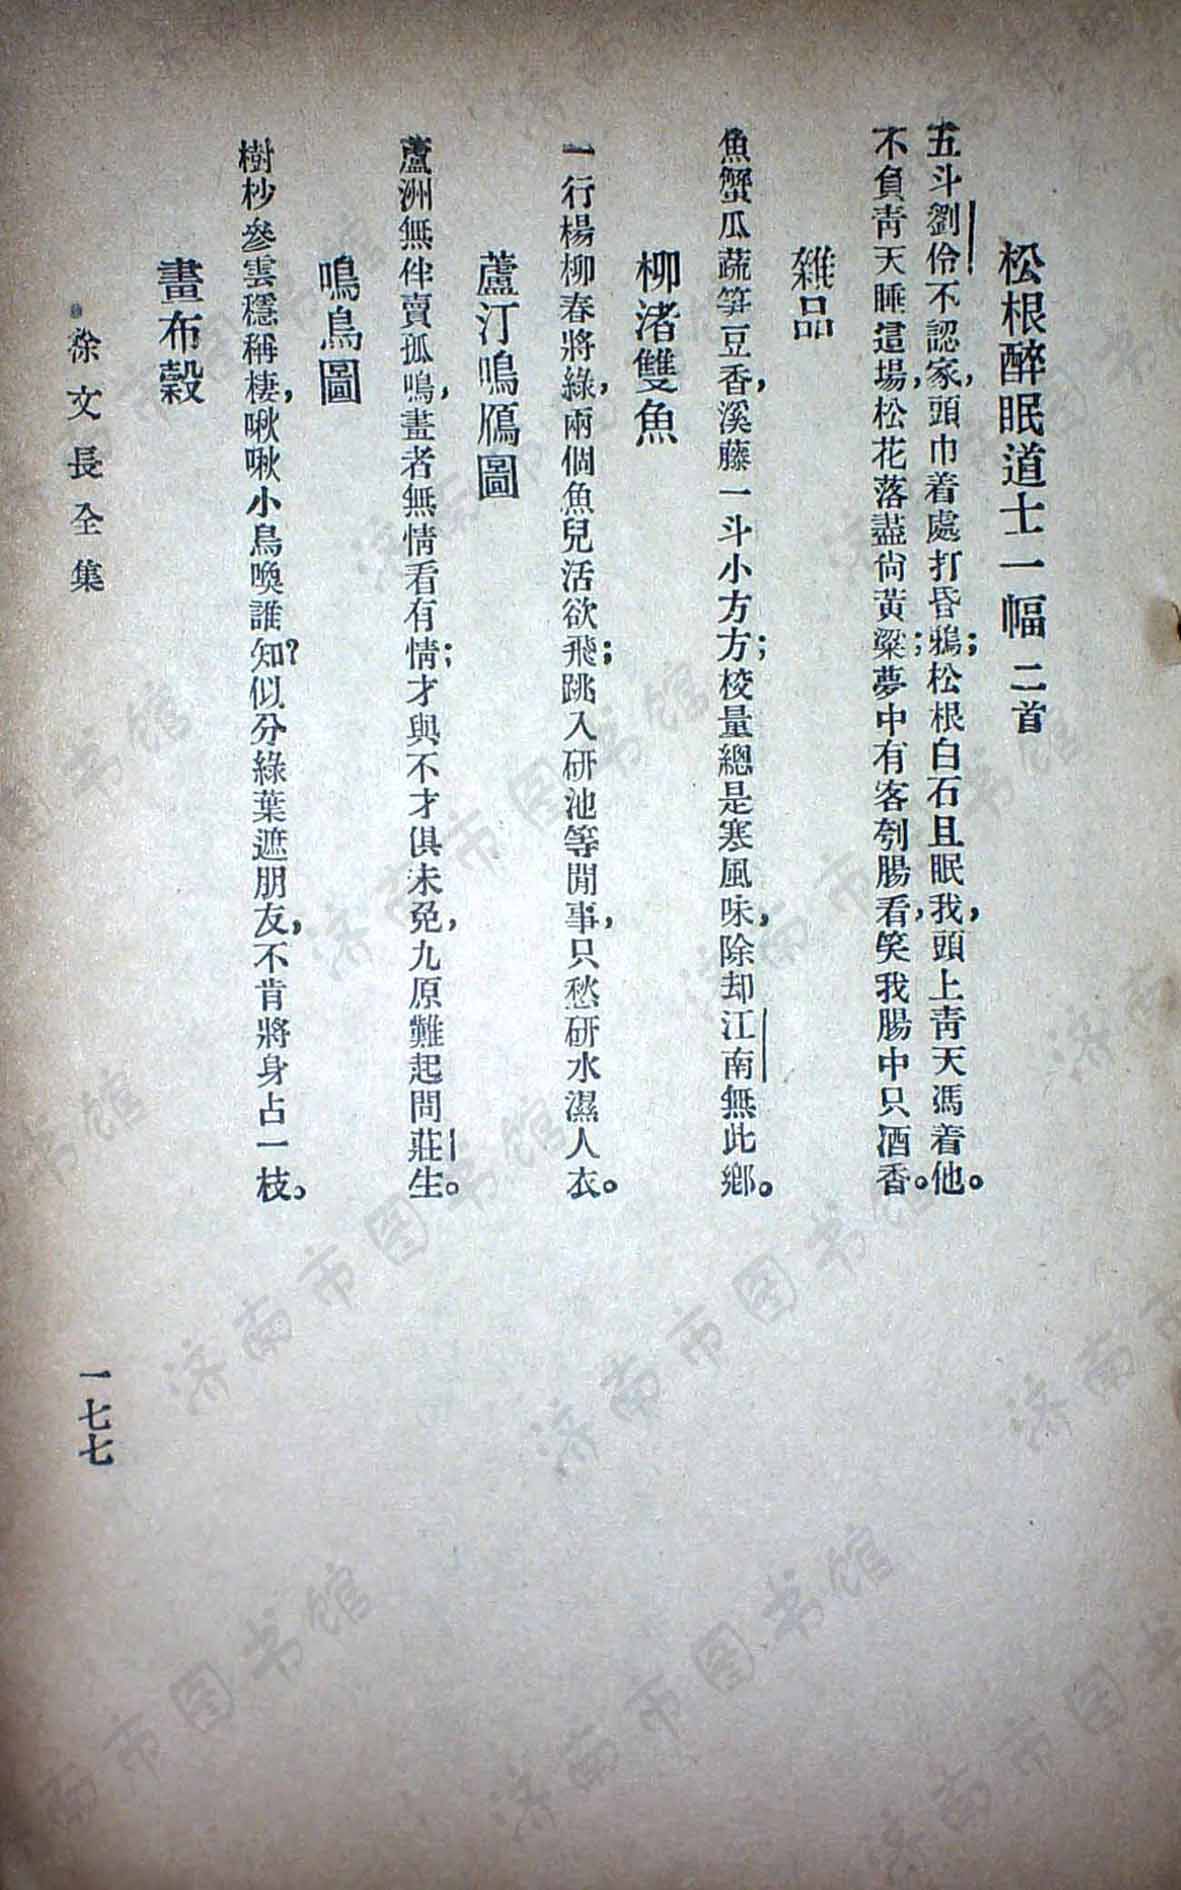 松根醉眠道士一幅 二首
五斗劉伶不認家，頭巾着處打昏鴉；松根白石且眠我，頭上青天馮着他。
不負青天睡這場，松花落盡尙黃粱；夢中有客刳腸看，笑我腸中只酒香。
雜品
魚蟹瓜蔬笋豆香，溪藤一斗小方方；校量總是寒風味，除却江南無此鄉。
柳渚雙魚
一行楊柳春將綠，兩個魚兒活欲飛；跳入研池等閒事，只愁研水濕人衣。
蘆汀鳴鴈圖
蘆洲無伴賣孤鳴，畫者無情看有情；才與不才俱未免，九原難起問莊生。
鳴鳥圖
樹杪參雲穩稱棲，啾啾小鳥喚誰知？似分綠葉遮朋友，不肯將身占一枝。
畫布穀
徐文長全集
一七七
济南市图书馆